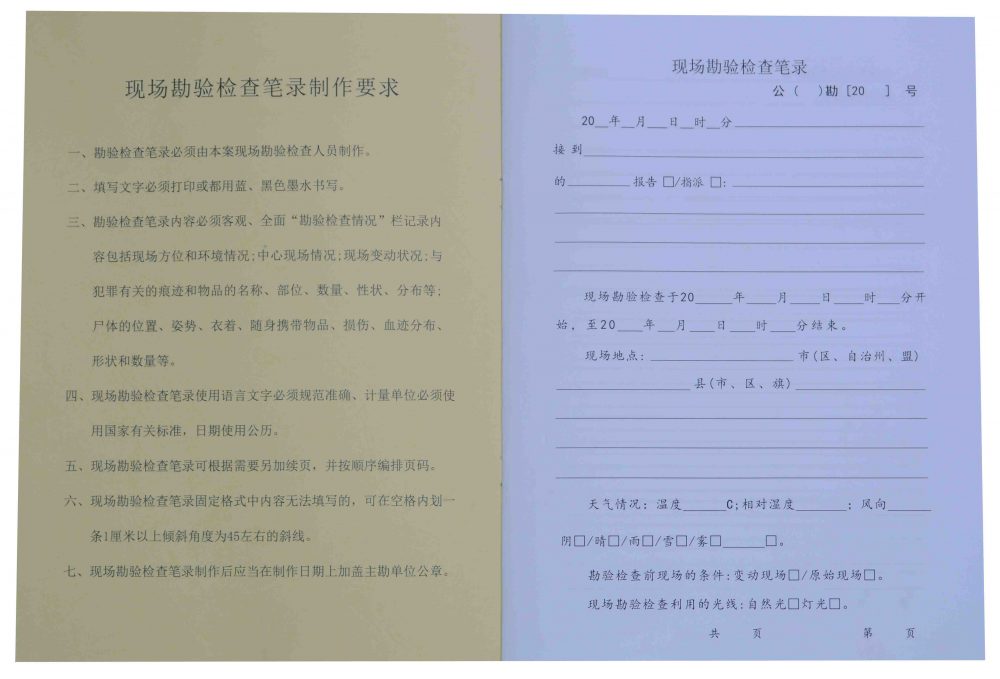 现场勘验检查笔录制作要求
一、勘验检查笔录必须由本案现场勘验检查人员制作。
二、填写文字必须打印或都用蓝、黑色墨水书写。
三、勘验检查笔录内容必须客观、全面“勘验检查情况”栏记录内
容包括现场方位和环境情况;中心现场情况;现场变动状况;与
犯罪有关的痕迹和物品的名称、部位、数量、性状、分布等;
尸体的位置、姿势、衣着、随身携带物品、损伤、血迹分布、
形状和数量等。
四、现场勘验检查笔录使用语言文字必须规范准确、计量单位必须使
用国家有关标准，日期使用公历。
五、现场勘验检查笔录可根据需要另加续页，并按顺序编排页码。
六、现场勘验检查笔录固定格式中内容无法填写的，可在空格内划一
条1厘米以上倾斜角度为45左右的斜线。
七、现场勘验检查笔录制作后应当在制作日期上加盖主勘单位公章。
现场勘验检查笔录
公（ ）勘［20 ］ 号
20__年__月___日__时__分____________________
接到____________________
的________ 报告 □/指派 □：____________________
现场勘验检查于20_____年____月____日____时___分开
始，至20___年__月___日___时___分结束。
现场地点：________________ 市(区、自治州、盟)
________________县(市、区、旗)________________
天气情况：温度_____C;相对湿度______；风向_____
阴□/晴□/雨□/雪□/雾□_____□。
勘验检查前现场的条件:变动现场□/原始现场□。
现场勘验检查利用的光线:自然光□灯光□。
共 页 第 页